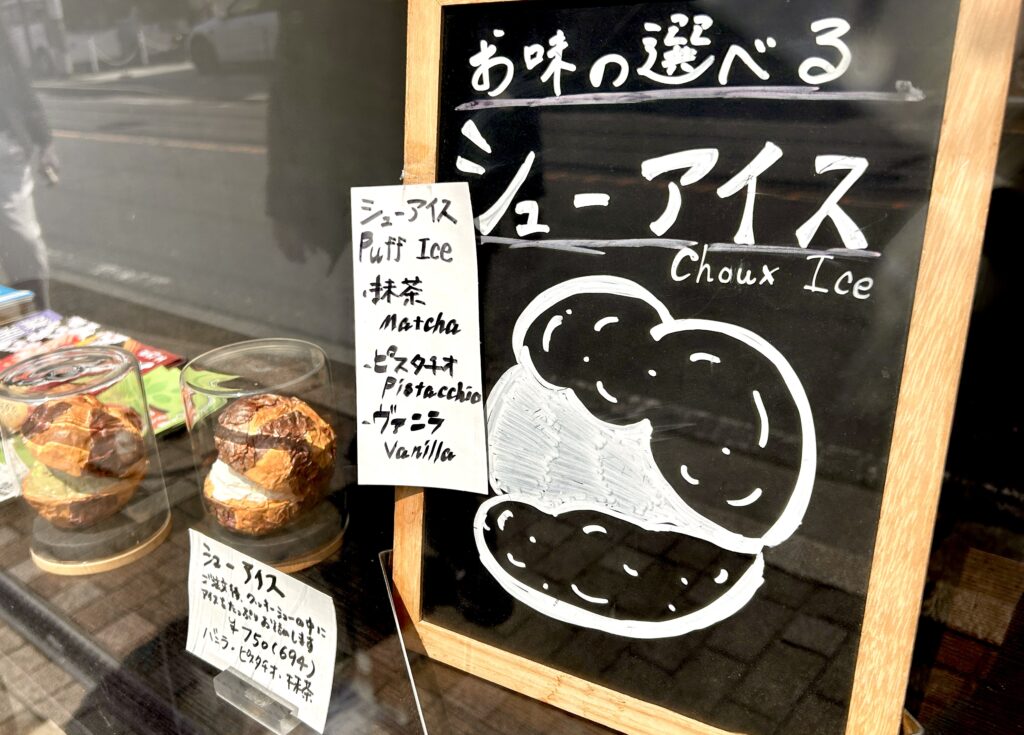 お味の選べる
シューアイス
Choux Ice
シューアイス
Puff Ice
・抹茶
Matcha
・ピスタチオ
Pistacchio
・ヴァニラ
Vanilla
シューアイス
ご注文後、クッキーシューの中に
アイスをたっぷりお詰めします
¥750(694)
バニラ・ピスタチオ・抹茶